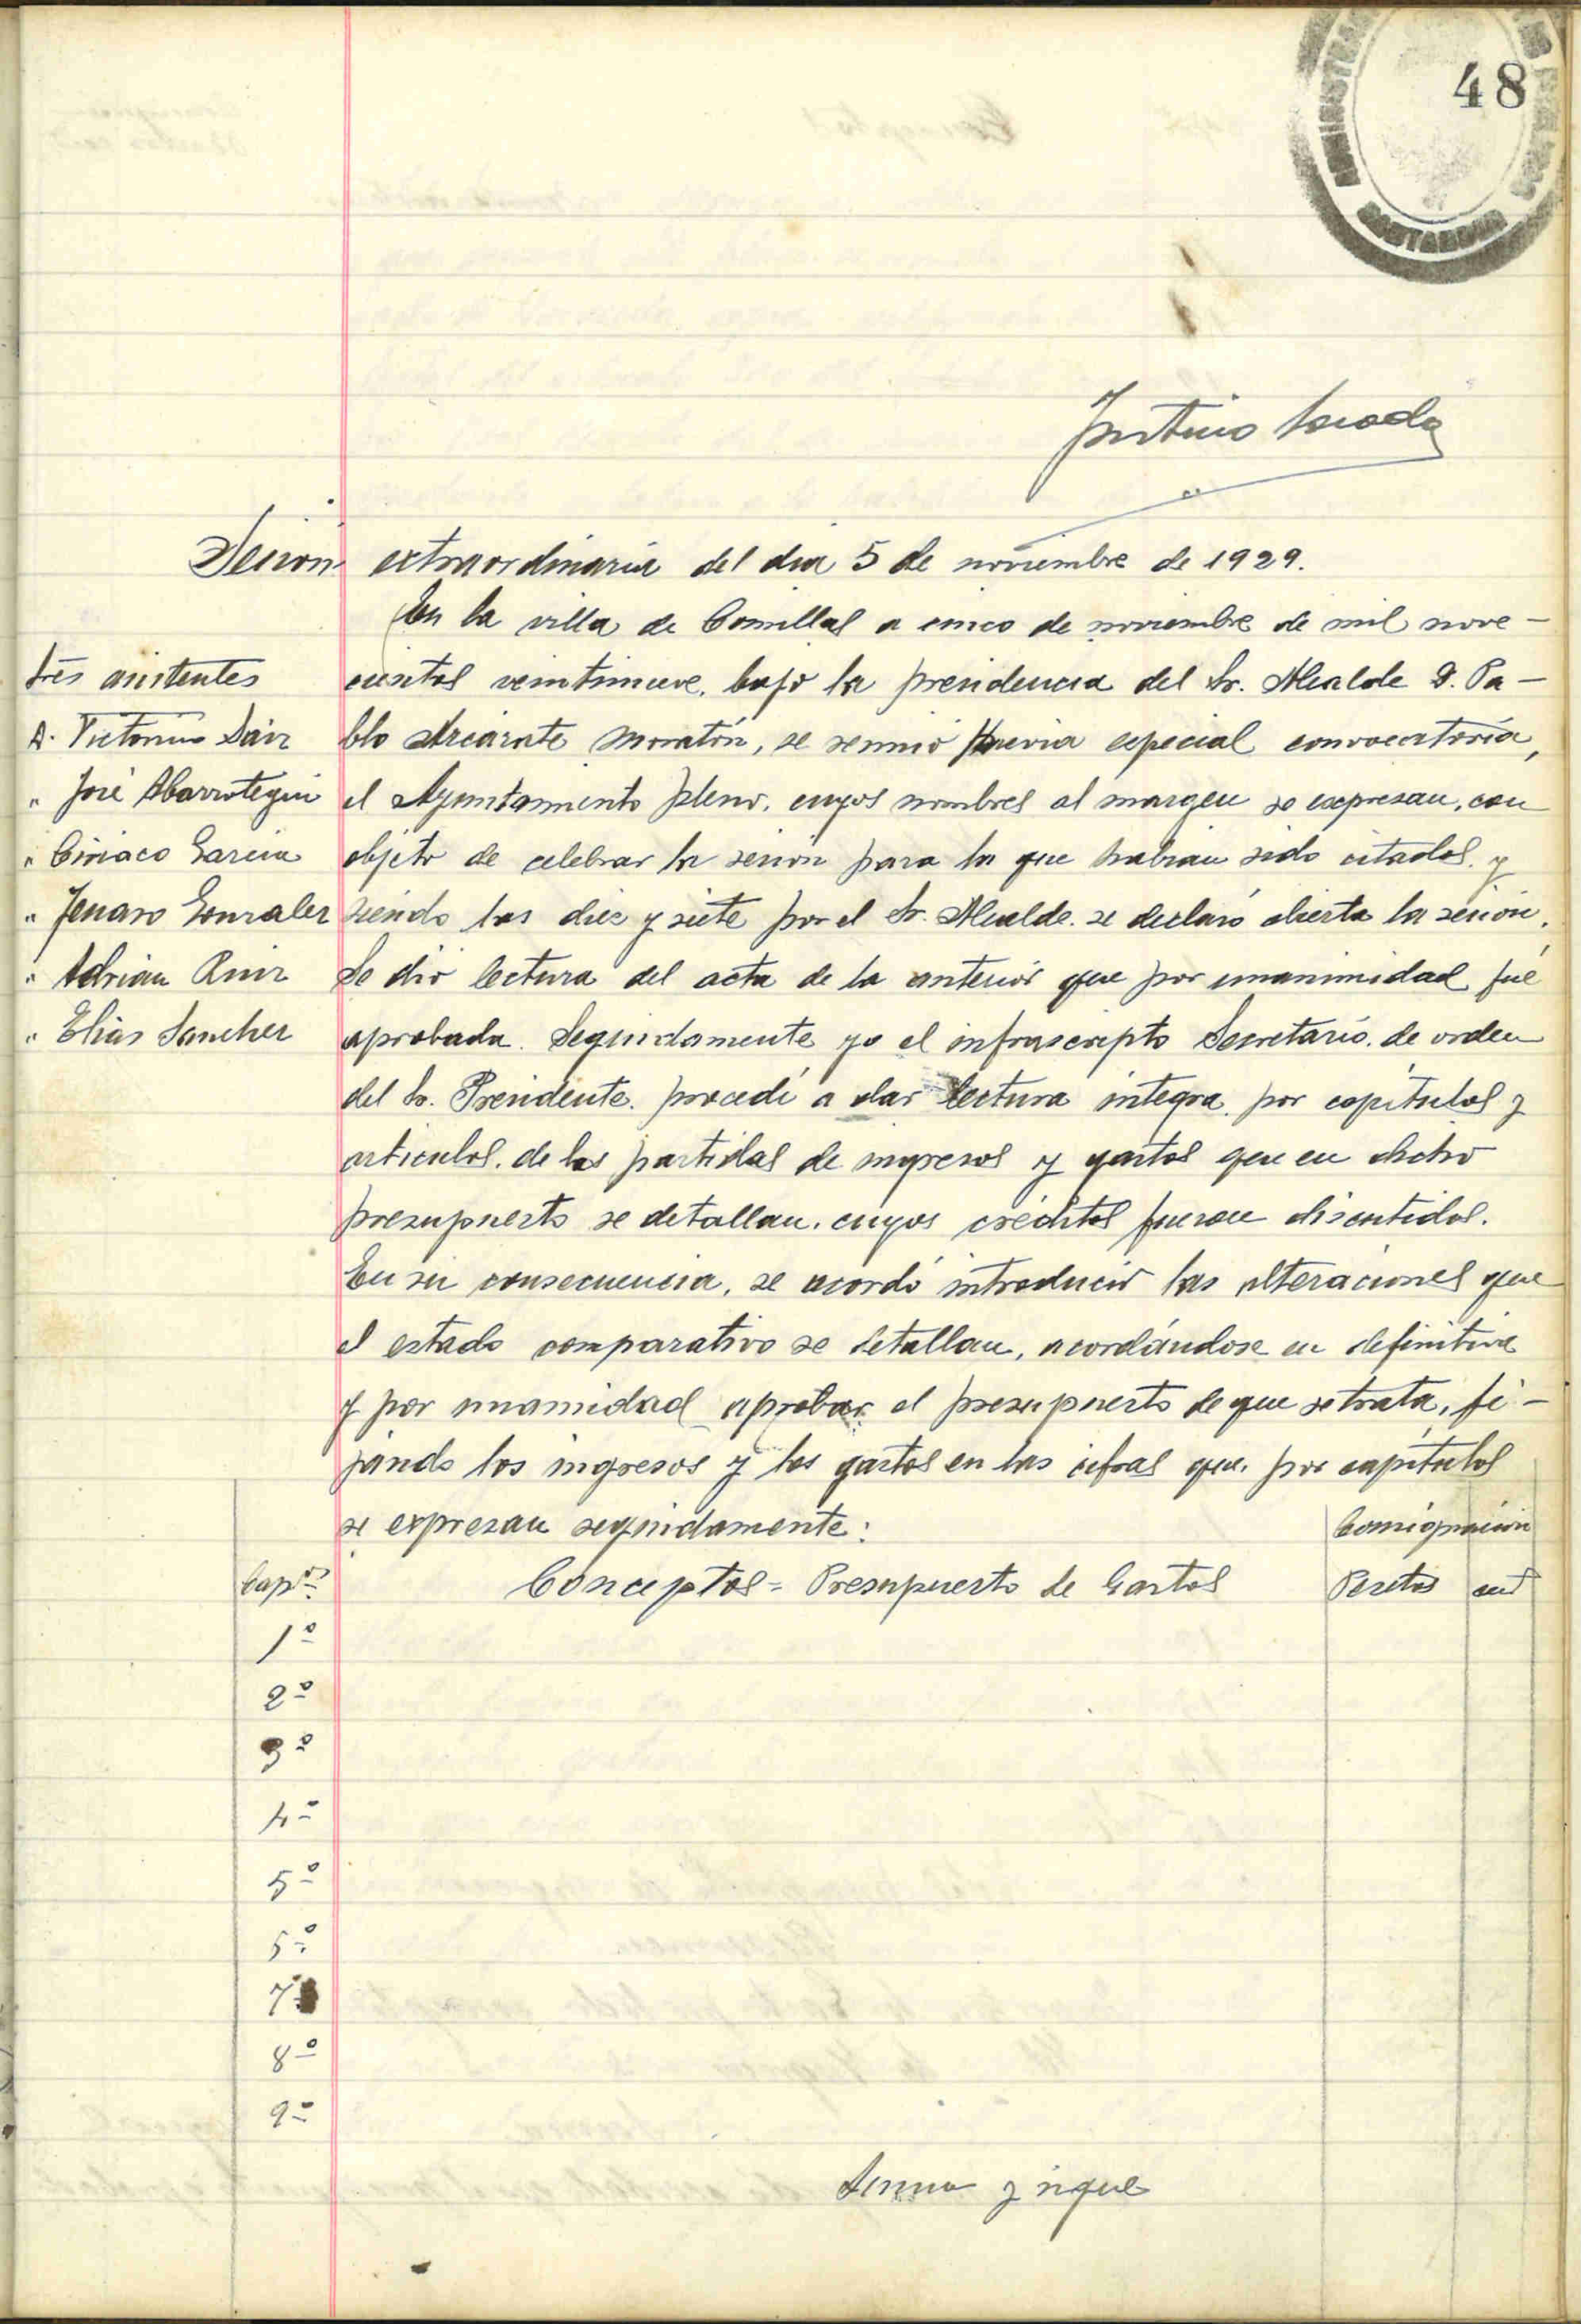 48
Sesion extraordinaria del dia 5 de noviembre de 1929.
En la villa de Comillas a cinco de noviembre de mil nove-
cientos veintinueve, bajo la presidencia del Sr. Alcalde D. Pa-
blo Arcárate Moratón, se reunió previa especial convocatoria,
el Ayuntamiento pleno, cuyos nombres al margen se expresan, con
objeto de celebrar la sesión para la que habian sido citados, y
siendo las diez y siete por el Sr. Alcalde se declaró abierta la sesión.
Se dió lectura del acta de la anterior que por unanimidad fué
aprobada. Seguidamente yo el infrascripto Secretario, de orden
del Sr. Presidente, procedí a dar lectura integra, por capítulos y
articulos, de las partidas de ingresos y gastos que en dicho
presupuesto se detallan, cuyos créditos fueron discutidos.
En su consecuencia, se acordó introducir las alteraciones que
el estado comparativo se detallan, acordándose en definitiva
y por unamidad aprobar el presupuesto de que se trata, fi-
jando los ingresos y los gastos en las cifras que, por capítulos
se expresan seguidamente:
Sres asistentes
D. Victorino Sainz
" José Abarrotegui
" Ciriaco Garcia
" Jenaro Gonzalez
" Adrian Ruiz
" Elias Sanchez
Consignación
Capos Conceptos = Presupuesto de Gastos Pesetas cent
1º
2º
3º
4º
5º
5º
7º
8º
9º
Suma y sigue